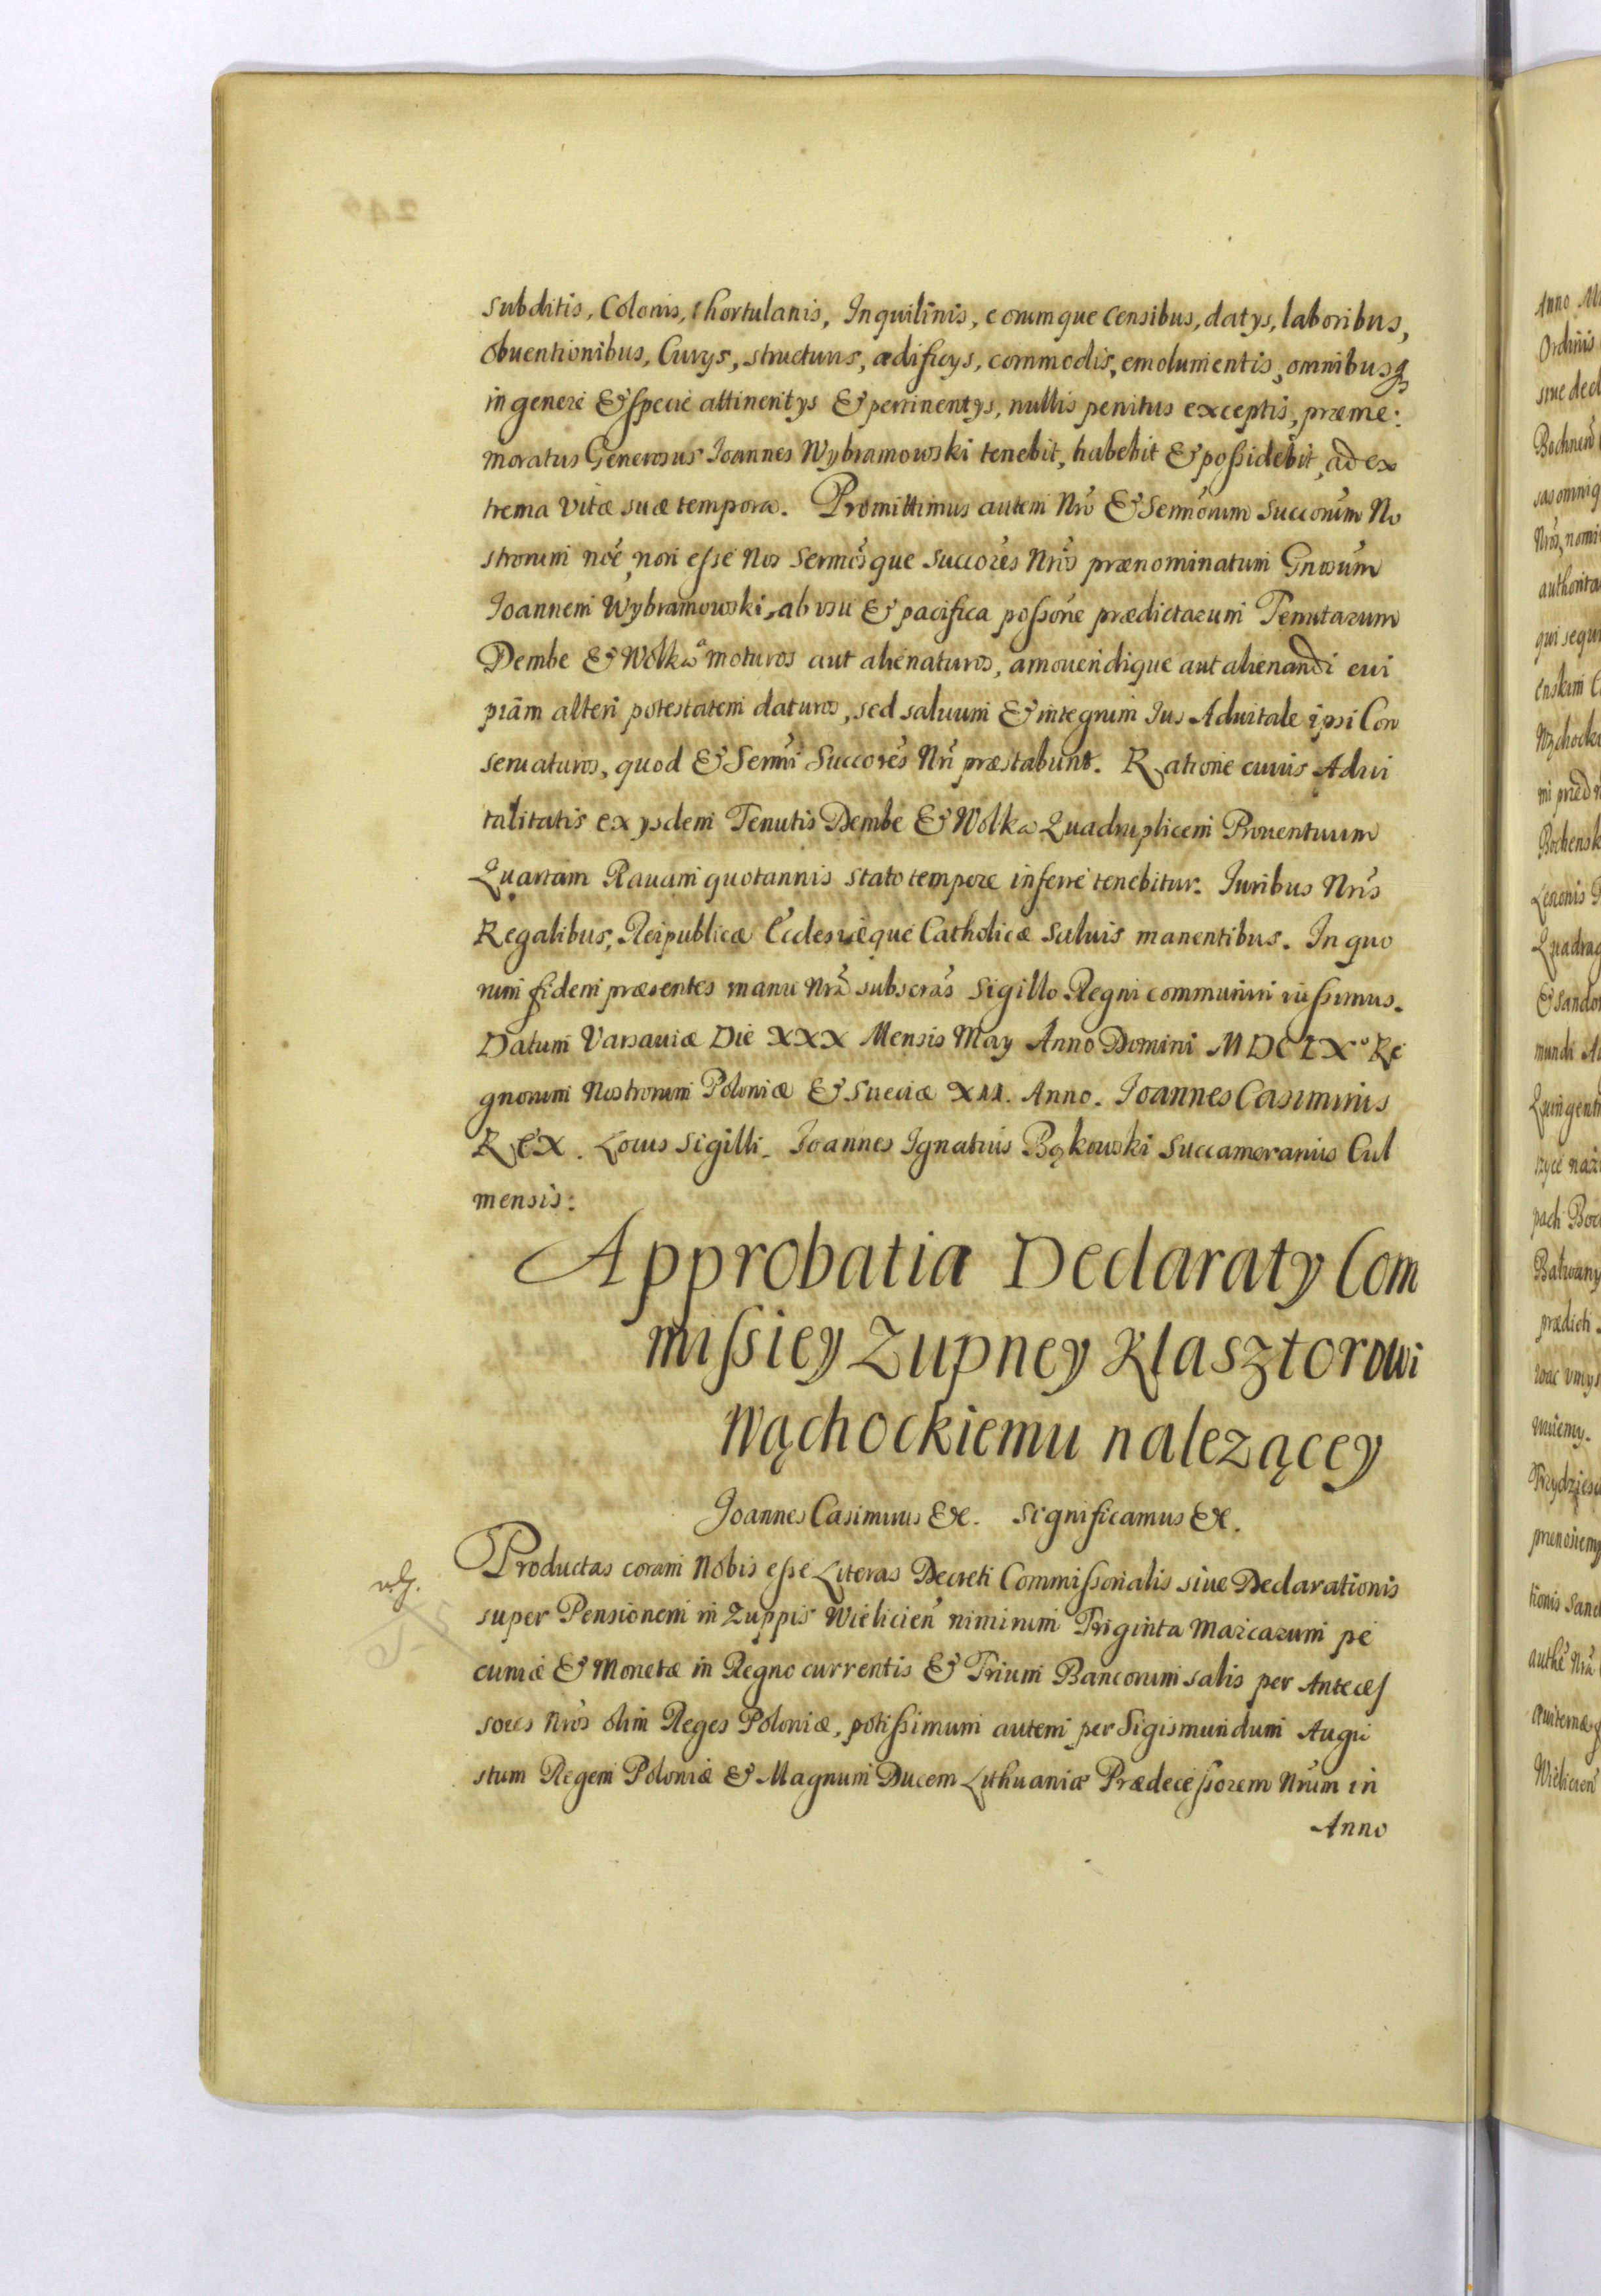 subditis, Colonis, hortulanis, Inquilinis, eorumque Censibus, datys, laboribus,
obuentionibus, Curys, structuris, ædificys, commodis, emolumentis, omnibusq
in genere & specie attinentys & pertinentys, nullis penitus exceptis, præme:
moratus Generosus Joannes Wybramowski tenebit, habebit & possidebit, ad ex
trema vitæ suæ tempora. Promittimus autem Nrõ & Sermõrum Succorũm No
strorum noẽ, non esse Nos Sermõsque Succorẽs Nrõs prænominatum Gnosũm
Joannem Wybramowski, ab vsu & pacifica possõne prædictarum Tenutarum
Dembe & Wolka amoturos aut alienaturos, amouendique aut alienandi cui
piam alteri potestatem daturos, sed saluum & integrum Jus Aduitale ipsi Con
seruaturos, quod & Sermi Succorẽs Nri præstabunt. Ratione cuius Adui
talitatis ex ysdem Tenutis Dembe & Wolka Quadruplicem Prouentuum
Quartam Rauam quotannis stato tempore inferre tenebitur. Juribus Nris
Regalibus, Reipublicæ Ecclesiæque Catholicæ saluis manentibus. In quo
rum fidem præsentes manu Nrã subscrãs Sigillo Regni communiri iussimus.
Datum Varsauiæ Die XXX Mensis May Anno Domini MDCLXº Re
gnorum Nostrorum Poloniæ & Sueciæ XII. Anno. Joannes Casimirus
REX. Locus Sigilli. Joannes Ignatius Bąkowski Succamerarius Cul
mensis:
Approbatia Declaraty Com
missiey Zupney Klasztorowi
Wąchockiemu nalezącey
Joannes Casimirus &c. Significamus &c.
Productas coram Nobis esse Literas Decreti Commissorialis siue Declarationis
super Pensionem in Zuppis Wielicień nimirum Triginta Marcarum pe
cuniæ & Monetæ in Regno currentis & Trium Bancorum salis per Anteces
sores Nrõs olim Reges Poloniæ, potissimum autem per Sigismundum Augu
stum Regem Poloniæ & Magnum Ducem Lithuaniæ Prædecessorem Nrũm in
Anno